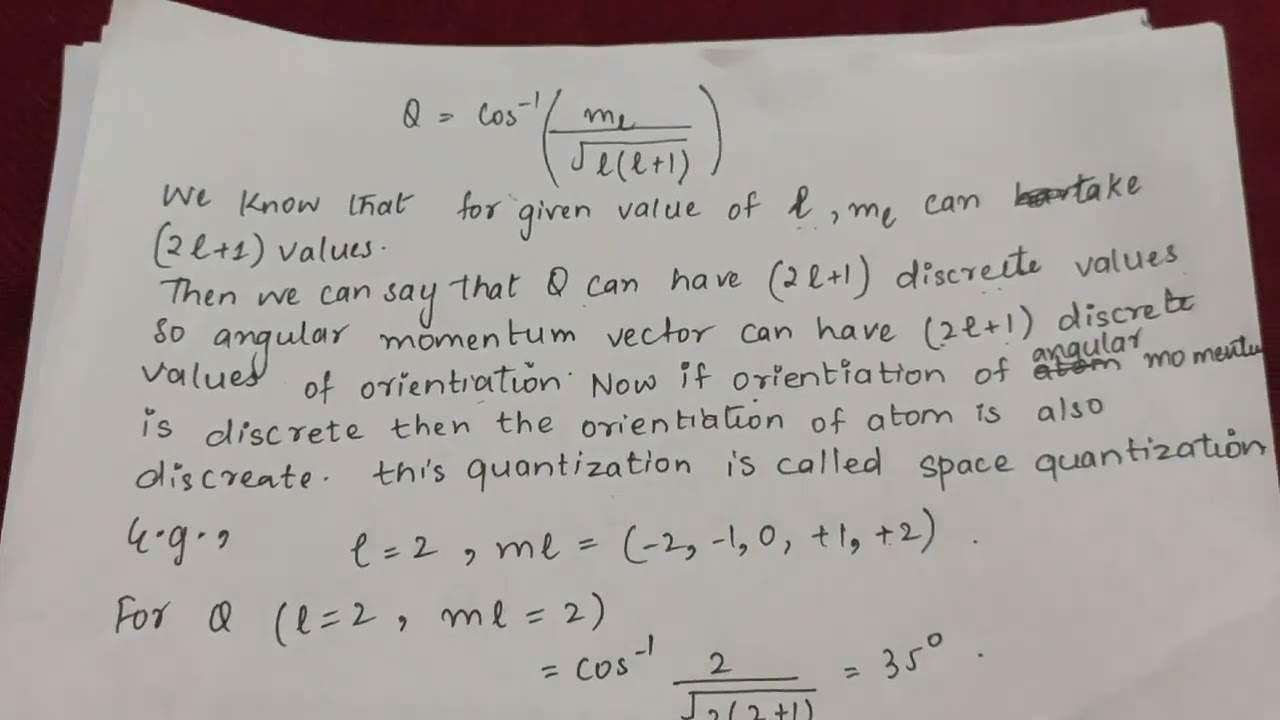 Q = cos⁻¹ ( mℓ / √ℓ(ℓ+1) )
We know that for given value of ℓ, mℓ can take
(2ℓ+1) values.
Then we can say that Q can have (2ℓ+1) discreete values
so angular momentum vector can have (2ℓ+1) discrete
values of orientiation. Now if orientiation of angular momentu
is discrete then the orientiation of atom is also
discreate. this quantization is called space quantization
E.g., ℓ = 2, mℓ = (-2, -1, 0, +1, +2).
For Q (ℓ = 2, mℓ = 2)
= cos⁻¹ 2 / √2(2+1) = 35⁰.